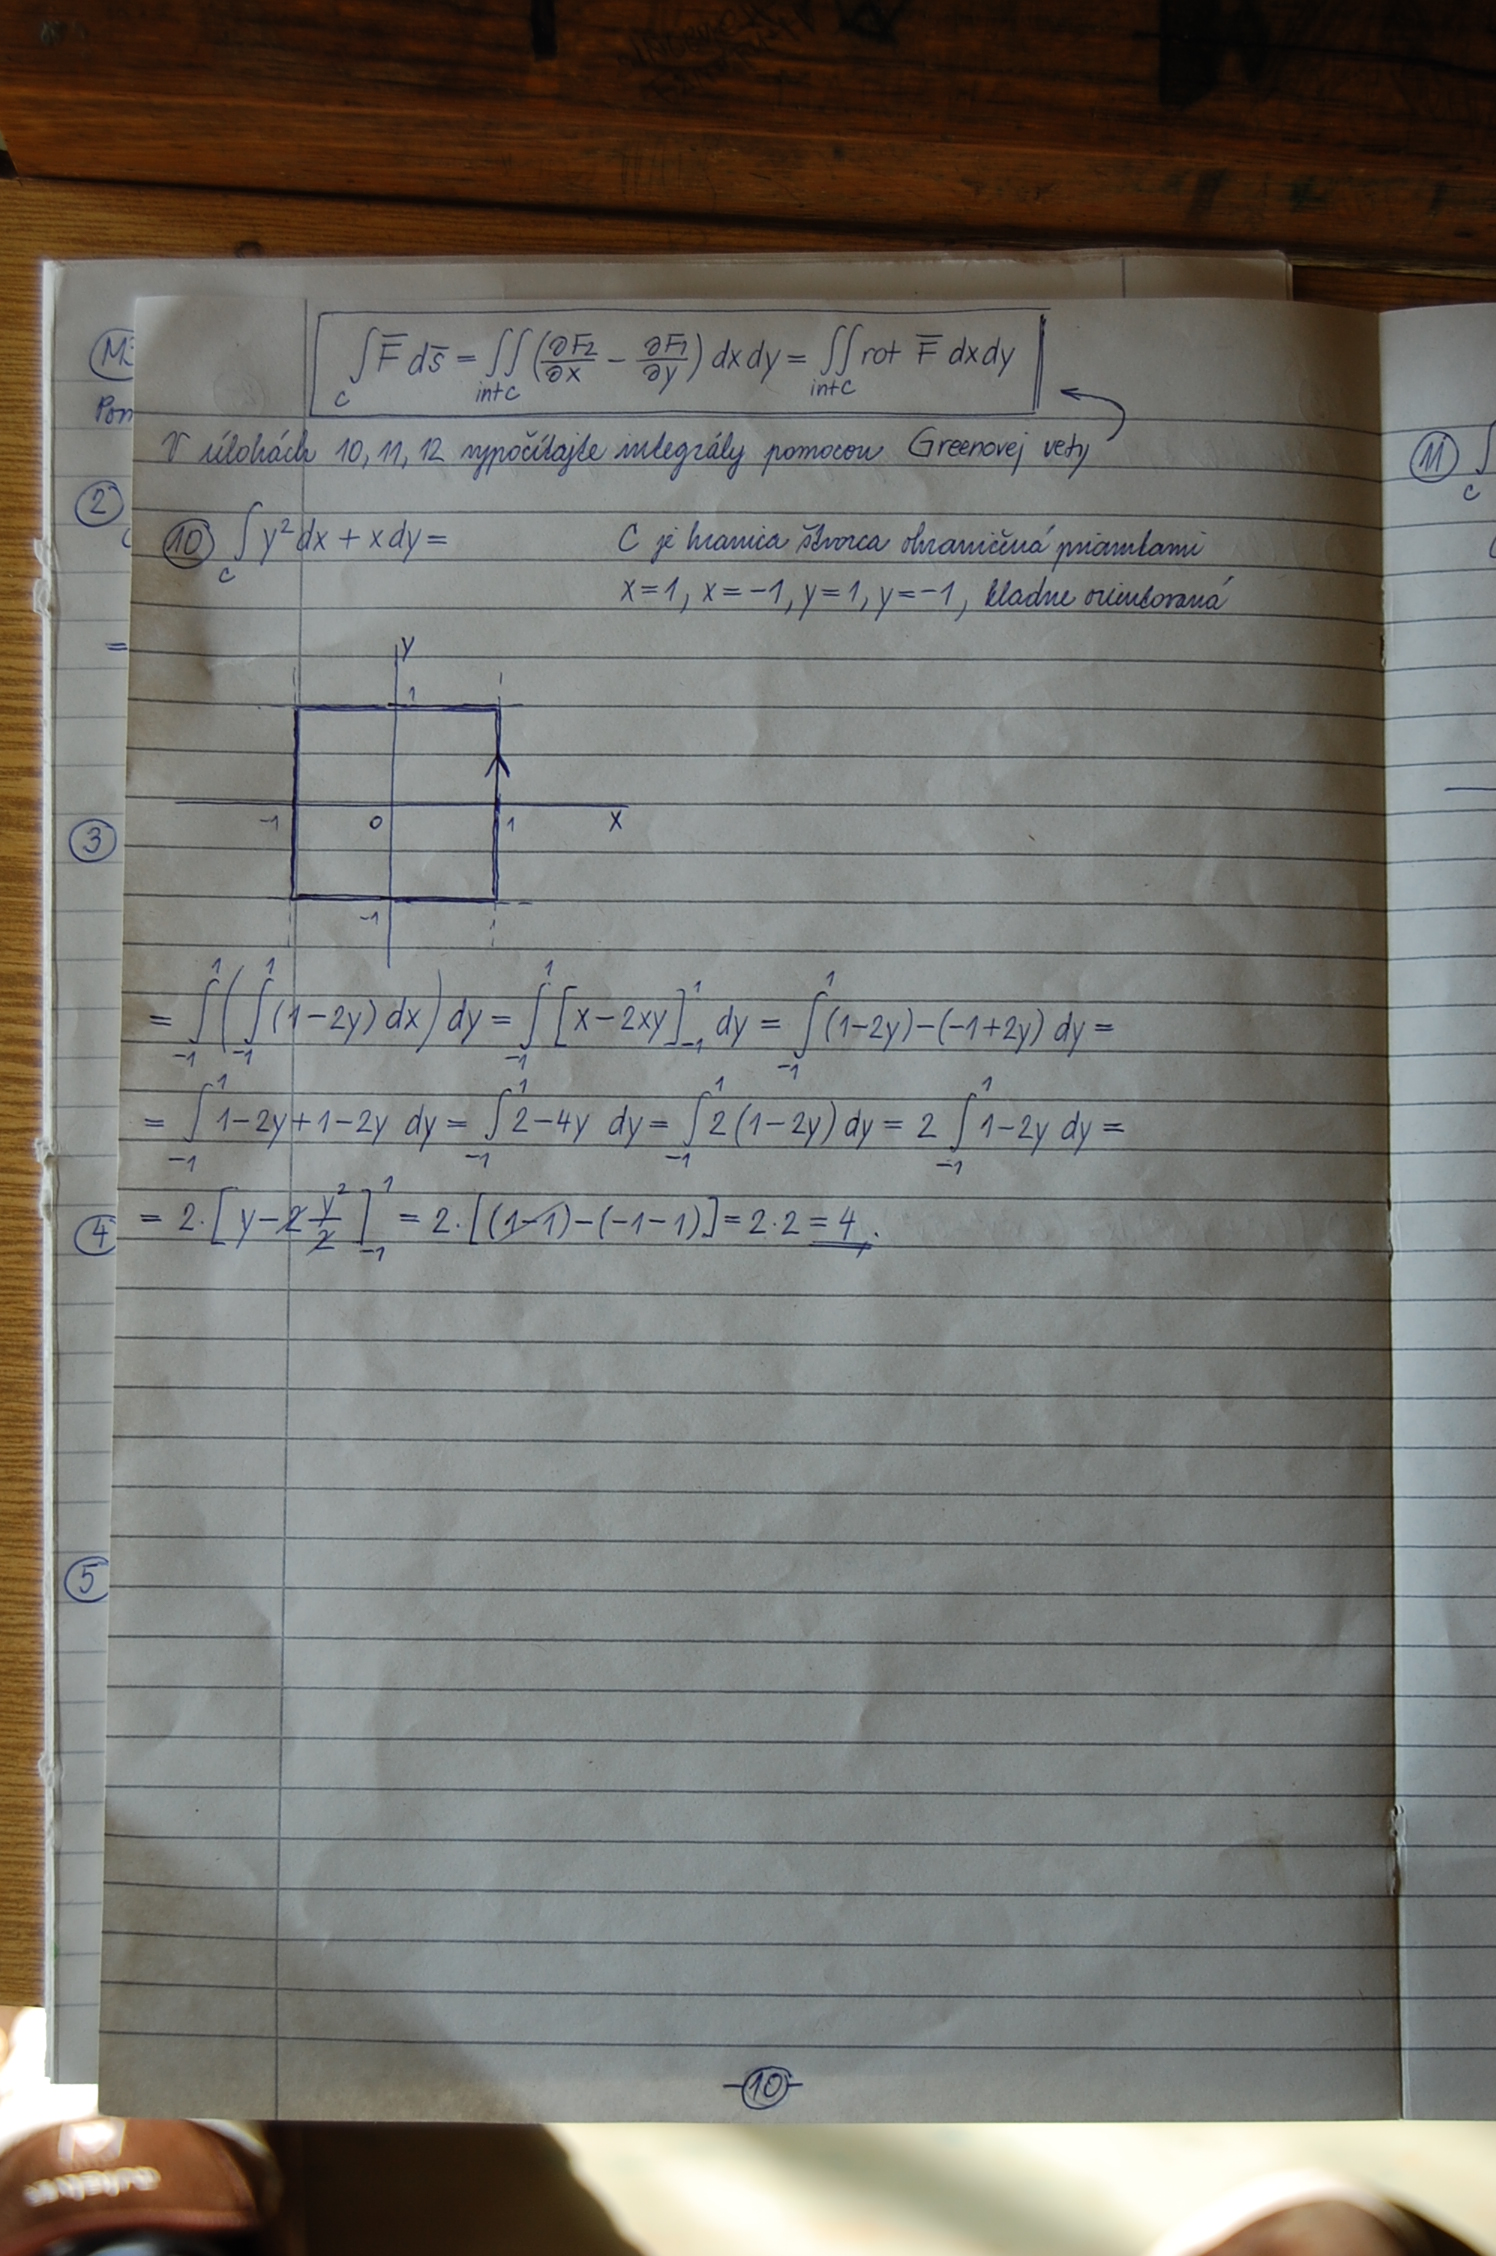 ∫_C F̅ ds̅ = ∬_{int C} (∂F₂/∂x − ∂F₁/∂y) dx dy = ∬_{int C} rot F̅ dx dy
V úlohách 10, 11, 12 vypočítajte integrály pomocou Greenovej vety
10 ∫_C y² dx + x dy =
C je hranica štvorca ohraničená priamkami
x = 1, x = −1, y = 1, y = −1, kladne orientovaná
y
1
−1 0 1 x
−1
= ∫_{−1}^{1} ( ∫_{−1}^{1} (1−2y) dx ) dy = ∫_{−1}^{1} [x − 2xy]_{−1}^{1} dy = ∫_{−1}^{1} (1−2y) − (−1+2y) dy =
= ∫_{−1}^{1} 1−2y+1−2y dy = ∫_{−1}^{1} 2−4y dy = ∫_{−1}^{1} 2(1−2y) dy = 2 ∫_{−1}^{1} 1−2y dy =
= 2·[y − 2 y²/2]_{−1}^{1} = 2·[(1−1)−(−1−1)] = 2·2 = 4.
−10−
2
3
4
5
11 ∫_C